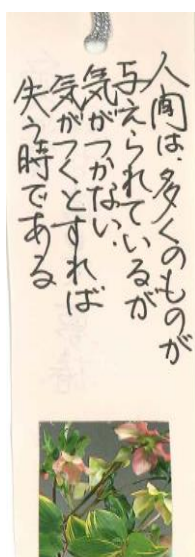 人間は、多くのものが
与えられているが
気がつかない、
気がつくとすれば
失う時である